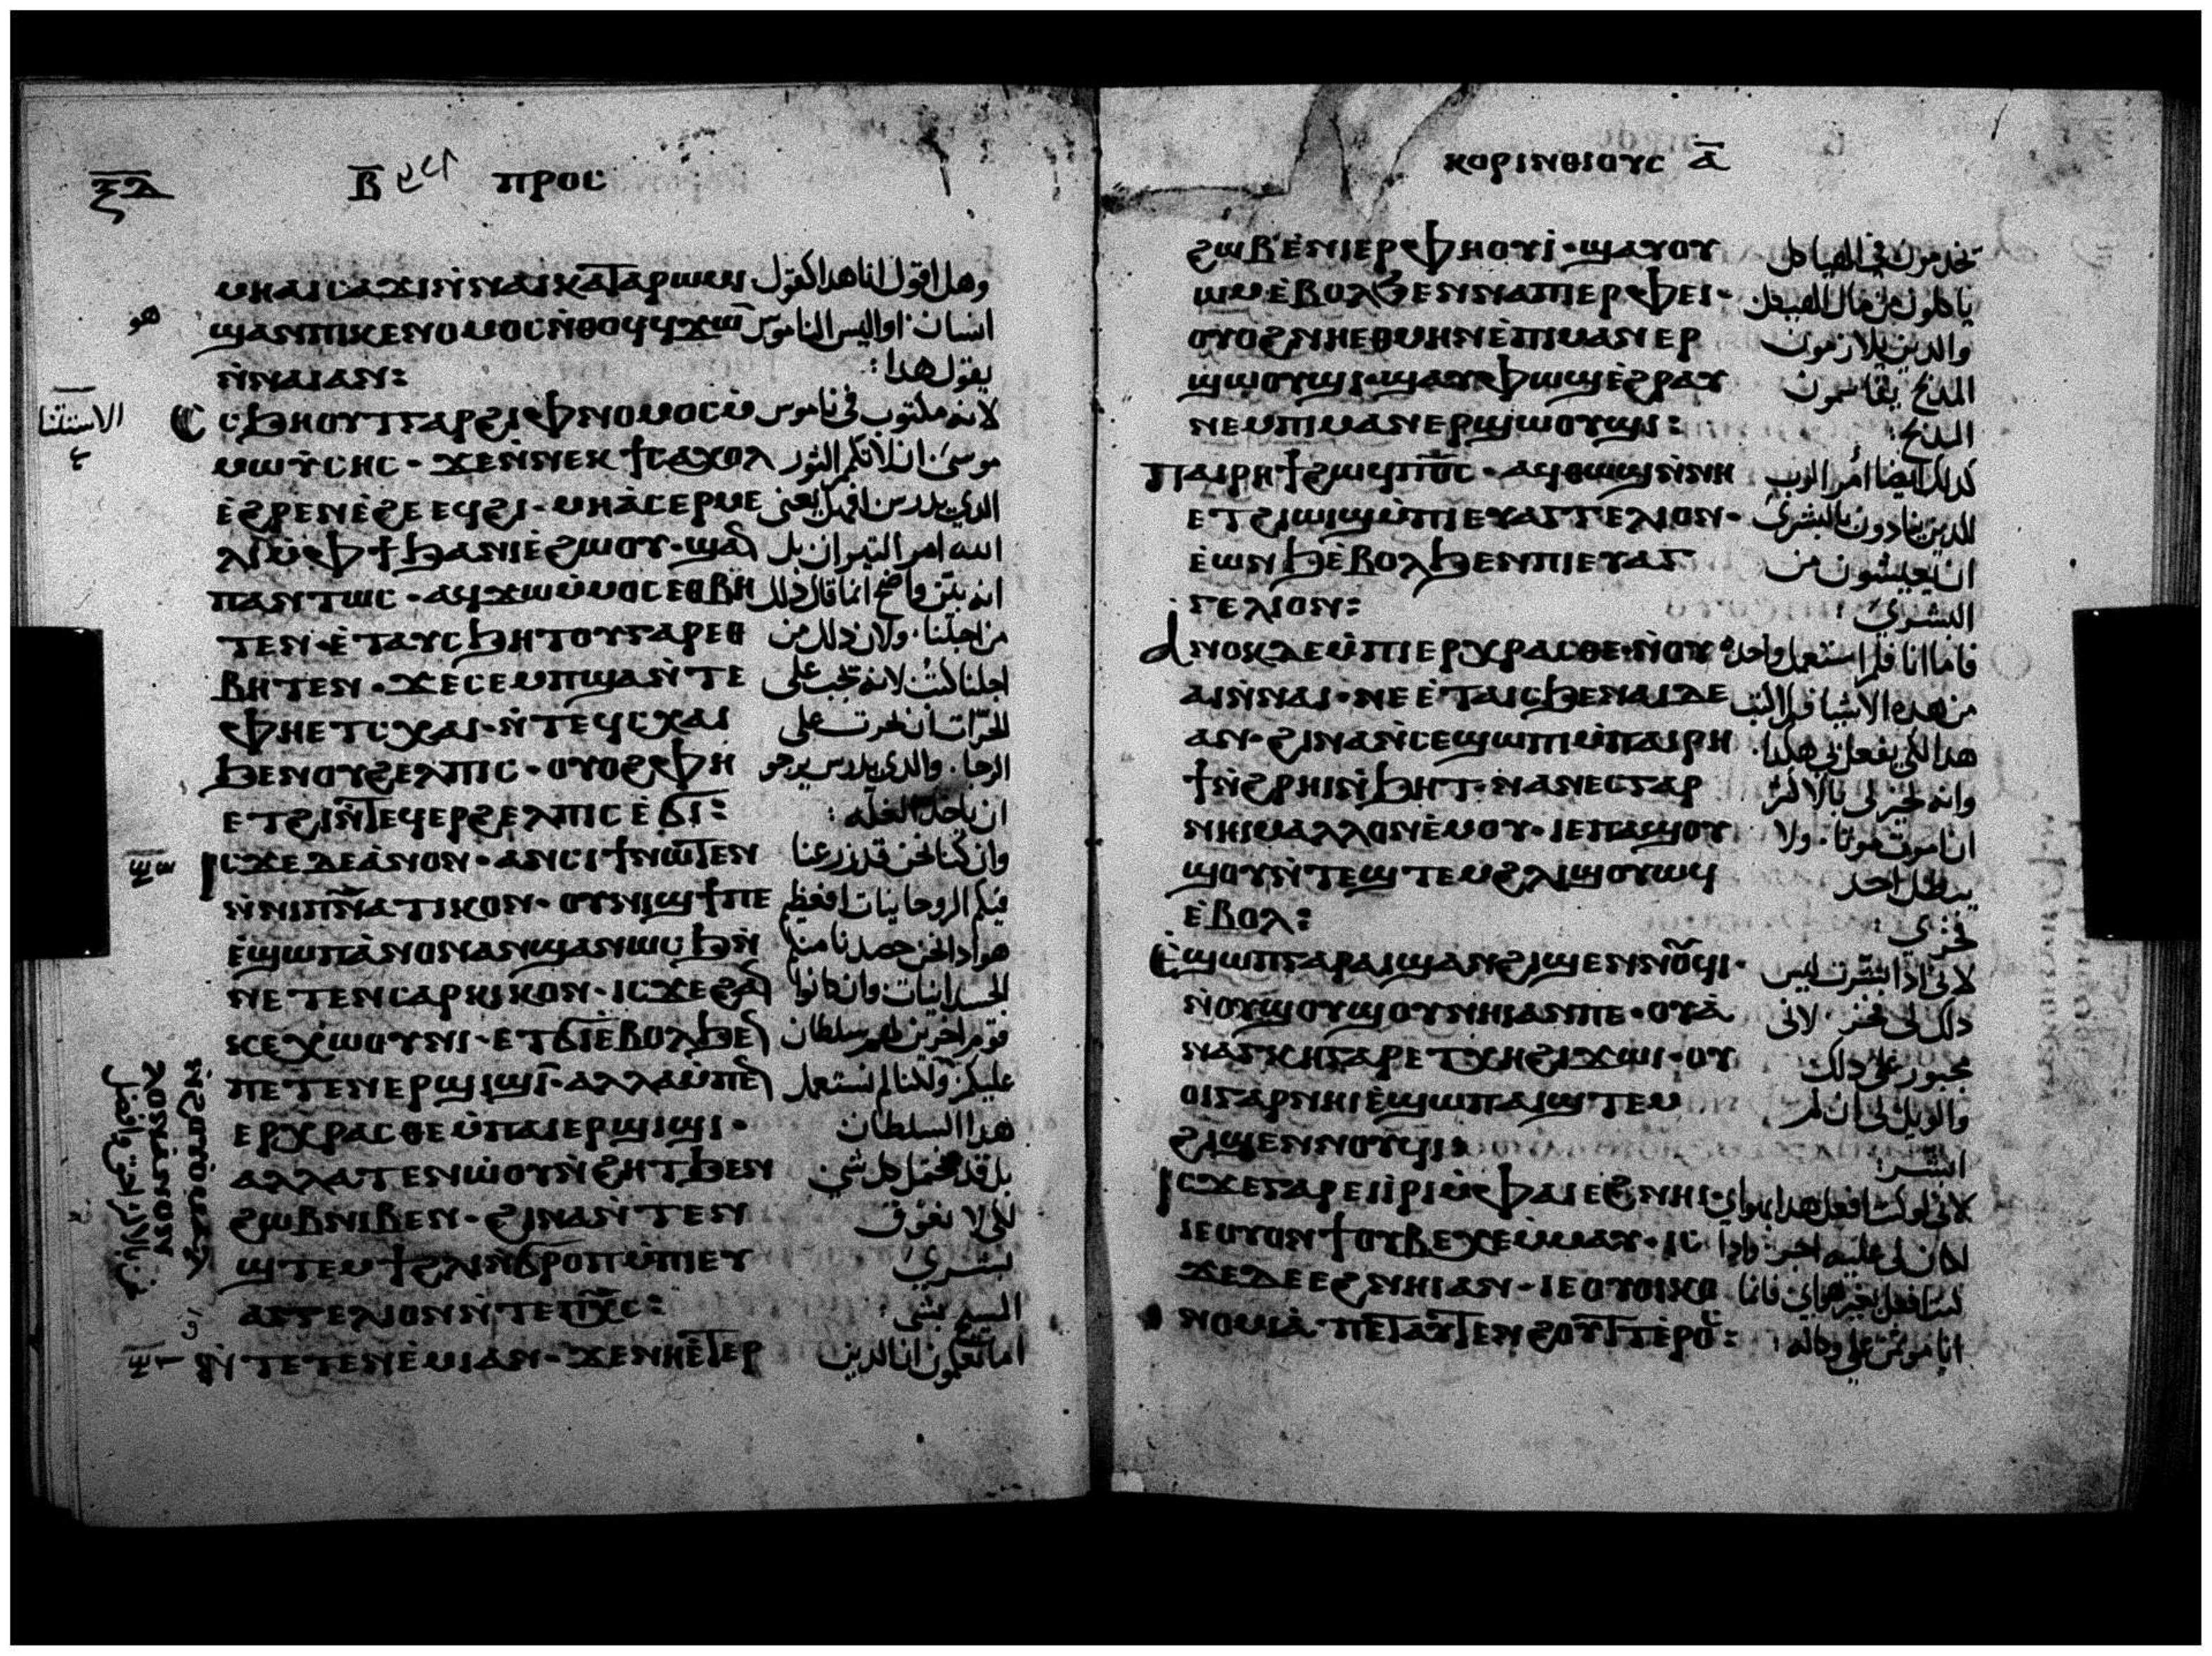 ⲝⲇ Ⲃ ⲡⲣⲟⲥ
ⲙⲏ ⲁⲓⲥⲁϫⲓ ⲛ̇ⲛⲁⲓ ⲕⲁⲧⲁ ⲣⲱⲙⲓ وهل اقول انا هدا كقول
ϣⲁⲛ ⲡⲓⲕⲉⲛⲟⲙⲟⲥ ⲛ̇ⲑⲟϥ ϥϫⲱ̅ انسان او اليس الناموس
هو
ⲛ̇ⲛⲁⲓ ⲁⲛ: يقول هدا:
ⲥⳉⲏⲟⲩⲧ ⲅⲁⲣ ϩⲓ ⲫⲛⲟⲙⲟⲥ ⲙ̇ لانه مكتوب في ناموس
الاستثنا
ⲙⲱⲩ̇ⲥⲏⲥ · ϫⲉ ⲛ̇ⲛⲉⲕϯⲥⲁϫⲟⲗ موسى ان لا تكم الثور
ⲉ̇ϩⲣⲉⲛ ⲉ̇ϩⲉ ⲉϥϩⲓ · ⲙⲏ ⲁ̇ⲥⲉⲣⲙⲉ الدي يدرس افهل يعنى
ⲗⲓⲛ ⲙ̇ⲫϯ ϧⲁ ⲛⲓⲉ̇ϩⲱⲟⲩ · ϣⲁⲛ الله امر التيران بل
ⲡⲁⲛⲧⲱⲥ · ⲁϥϫⲱ ⲙ̇ⲙⲟⲥ ⲉⲑⲃⲏ انه بين واضح انما قال دلك
ⲧⲉⲛ · ⲉ̇ⲧⲁⲩⲥϧⲏⲧⲟⲩ ⲅⲁⲣ ⲉⲑ من اجلنا · ولان دلك من
ⲃⲏⲧⲉⲛ · ϫⲉ ⲥⲉⲙⲡϣⲁ ⲛ̇ⲧⲉ اجلنا كتب لانه يجب على
ⲫⲏⲉⲧⲥⲭⲁⲓ · ⲛ̇ⲧⲉϥⲥⲭⲁⲓ الحرّات ان يحرت على
ϧⲉⲛ ⲟⲩϩⲉⲗⲡⲓⲥ · ⲟⲩⲟϩ ⲫⲏ الرجا · والدي يدرس يرجو
ⲉⲧϩⲓ ⲛ̇ⲧⲉϥⲉⲣϩⲉⲗⲡⲓⲥ ⲉ̇ϭⲓ: ان ياخد الغله:
ⲓⲥϫⲉ ⲇⲉ ⲁ̇ⲛⲟⲛ · ⲁⲛⲥⲓϯ ⲛⲱⲧⲉⲛ وان كنا نحن قد زرعنا
ⲛ̇ⲛⲓⲡⲛ̅ⲁⲧⲓⲕⲟⲛ · ⲟⲩⲛⲓϣϯ ⲡⲉ فيكم الروحانيات افعظيم
ⲉ̇ϣⲱⲡ ⲁ̇ⲛⲟⲛ ⲁⲛϣⲁⲛⲱⲥϧ ⲛ̇ هو ادا نحن حصدنا منكم
ⲛⲉⲧⲉⲛⲥⲁⲣⲕⲓⲕⲟⲛ · ⲓⲥϫⲉ ϩⲁⲛ الجسدانيات وان كانوا
ⲕⲉⲭⲱⲟⲩⲛⲓ · ⲉⲧϭⲓ ⲉ̇ⲃⲟⲗ ϧⲉⲛ قوم اخرين لهم سلطان
ⲡⲉⲧⲉⲛⲉⲣϣⲓϣⲓ · ⲁⲗⲗⲁ ⲙ̇ⲡⲉⲛ عليكم ولكنا لم نستعمل
ⲉⲣⲭⲣⲁⲥⲑⲉ ⲙ̇ⲡⲁⲓⲉⲣϣⲓϣⲓ · هدا السلطان
ⲁⲗⲗⲁ ⲧⲉⲛⲱ̇ⲟⲩ ⲛ̇ϩⲏⲧ ϧⲉⲛ بل قد نحتمل كل شي
ϩⲱⲃ ⲛⲓⲃⲉⲛ · ϩⲓⲛⲁ ⲛ̇ⲧⲉⲛ لكى لا نعوق
ϣⲧⲉⲙϯ ϩⲗⲓ ⲛ̇ϭⲣⲟⲡ ⲙ̇ⲡⲓⲉⲩ بشرى
ⲁⲅⲅⲉⲗⲓⲟⲛ ⲛ̇ⲧⲉ ⲡⲭ̅ⲥ: المسيح بشى:
ⲛ̇ⲧⲉⲧⲉⲛⲉ̇ⲙⲓ ⲁⲛ · ϫⲉ ⲛⲏⲉ̇ⲧⲉⲣ اما تعلمون ان الدين
ⲕⲟⲣⲓⲛⲑⲓⲟⲩⲥ ⲁ̅
ϩⲱⲃ ⲉ̇ⲛⲓⲉⲣⲫⲏⲟⲩⲓ̇ · ϣⲁⲩⲟⲩ يخدمون في الهياكل
ⲱⲙ ⲉ̇ⲃⲟⲗ ϧⲉⲛ ⲛⲁ ⲡⲓⲉⲣⲫⲉⲓ · ياكلون من مال الهيكل
ⲟⲩⲟϩ ⲛⲏⲉⲑⲙⲏⲛ ⲉ̇ⲡⲓⲙⲁⲛⲉⲣ والدين يلازمون
ϣⲱⲟⲩϣⲓ · ϣⲁⲩⲫⲱϣ ⲉ̇ϩⲣⲁⲩ المدبح يقاسمون
ⲛⲉⲙ ⲡⲓⲙⲁⲛⲉⲣϣⲱⲟⲩϣⲓ: المدبح:
ⲡⲁⲓⲣⲏϯ ϩⲱϥ ⲡⲟ̅ⲥ · ⲁϥⲑⲱϣ ⲛ̇ⲛⲏ كدلك ايضا امر الرب
ⲉⲧϩⲓⲱⲓϣ ⲙ̇ⲡⲓⲉⲩⲁⲅⲅⲉⲗⲓⲟⲛ · للدين ينادون بالبشرى
ⲉ̇ⲱⲛϧ ⲉ̇ⲃⲟⲗ ϧⲉⲛ ⲡⲓⲉⲩⲁⲅ ان يعيشون من
ⲅⲉⲗⲓⲟⲛ: البشرى:
ⲁⲛⲟⲕ ⲇⲉ ⲙ̇ⲡⲓⲉⲣⲭⲣⲁⲥⲑⲉ ⲛ̇ⲟⲩ فاما انا فلم استعمل واحده
ⲁⲓ ⲛ̇ⲛⲁⲓ · ⲛⲉ ⲉ̇ⲧⲁⲓⲥϧⲉ ⲛⲁⲓ ⲇⲉ من هده الاشيا فلم اكتب
ⲁⲛ · ϩⲓⲛⲁ ⲛ̇ⲥⲉϣⲱⲡⲓ ⲙ̇ⲡⲁⲓⲣⲏ هدا لكي يفعل بي هكدا
ϯ ⲛ̇ϩⲣⲏⲓ ⲛ̇ϧⲏⲧ · ⲛⲁⲛⲉⲥ ⲅⲁⲣ وانه لخير لي بالاكثر
ⲛⲏⲓ ⲙⲁⲗⲗⲟⲛ ⲉ̇ⲙⲟⲩ · ⲓⲉ ⲡⲁϣⲟⲩ ان اموت موتا · ولا
ϣⲟⲩ ⲛ̇ⲧⲉϣⲧⲉⲙ ϩⲗⲓ ϣⲟⲩⲱϥ يبطل احد
ⲉ̇ⲃⲟⲗ: فخري:
ⲉ̇ϣⲱⲡ ⲅⲁⲣ ⲁⲓϣⲁⲛϩⲓϣⲉⲛⲛⲟⲩϥⲓ · لاني ادا بشّرت ليس
ⲛ̇ⲟⲩϣⲟⲩϣⲟⲩ ⲛⲏⲓ ⲁⲛ ⲡⲉ · ⲟⲩⲁ̇ دلك لي فخر · لانى
ⲛⲁⲅⲕⲏ ⲅⲁⲣ ⲉⲧⲭⲏ ϩⲓϫⲱⲓ · ⲟⲩ مجبور على دلك
ⲟⲓ ⲅⲁⲣ ⲛⲏⲓ ⲉ̇ϣⲱⲡ ⲁⲓϣⲧⲉⲙ والويل لى ان لم
ϩⲓϣⲉⲛⲛⲟⲩϥⲓ: ابشّر:
ⲓⲥϫⲉ ⲅⲁⲣ ⲉⲓⲓ̇ⲣⲓ ⲙ̇ⲫⲁⲓ ⲉϩⲛⲏⲓ · لاني لو كنت افعل هدا بهواي
ⲓⲉ ⲟⲩⲟⲛϯ ⲟⲩⲃⲉⲭⲉ ⲙ̇ⲙⲁⲩ · ⲓⲥ لكان لى عليه اجر وادا
ϫⲉ ⲇⲉ ⲉϩⲛⲏⲓ ⲁⲛ · ⲓⲉ ⲟⲩⲟⲓⲕⲟ كنت افعل بغير هواي فانما
ⲛⲟⲙⲓⲁ̇ ⲡⲉⲧⲁⲩⲧⲉⲛϩⲟⲩⲧ ⲉ̇ⲣⲟⲥ: انا موتمن على وكاله: